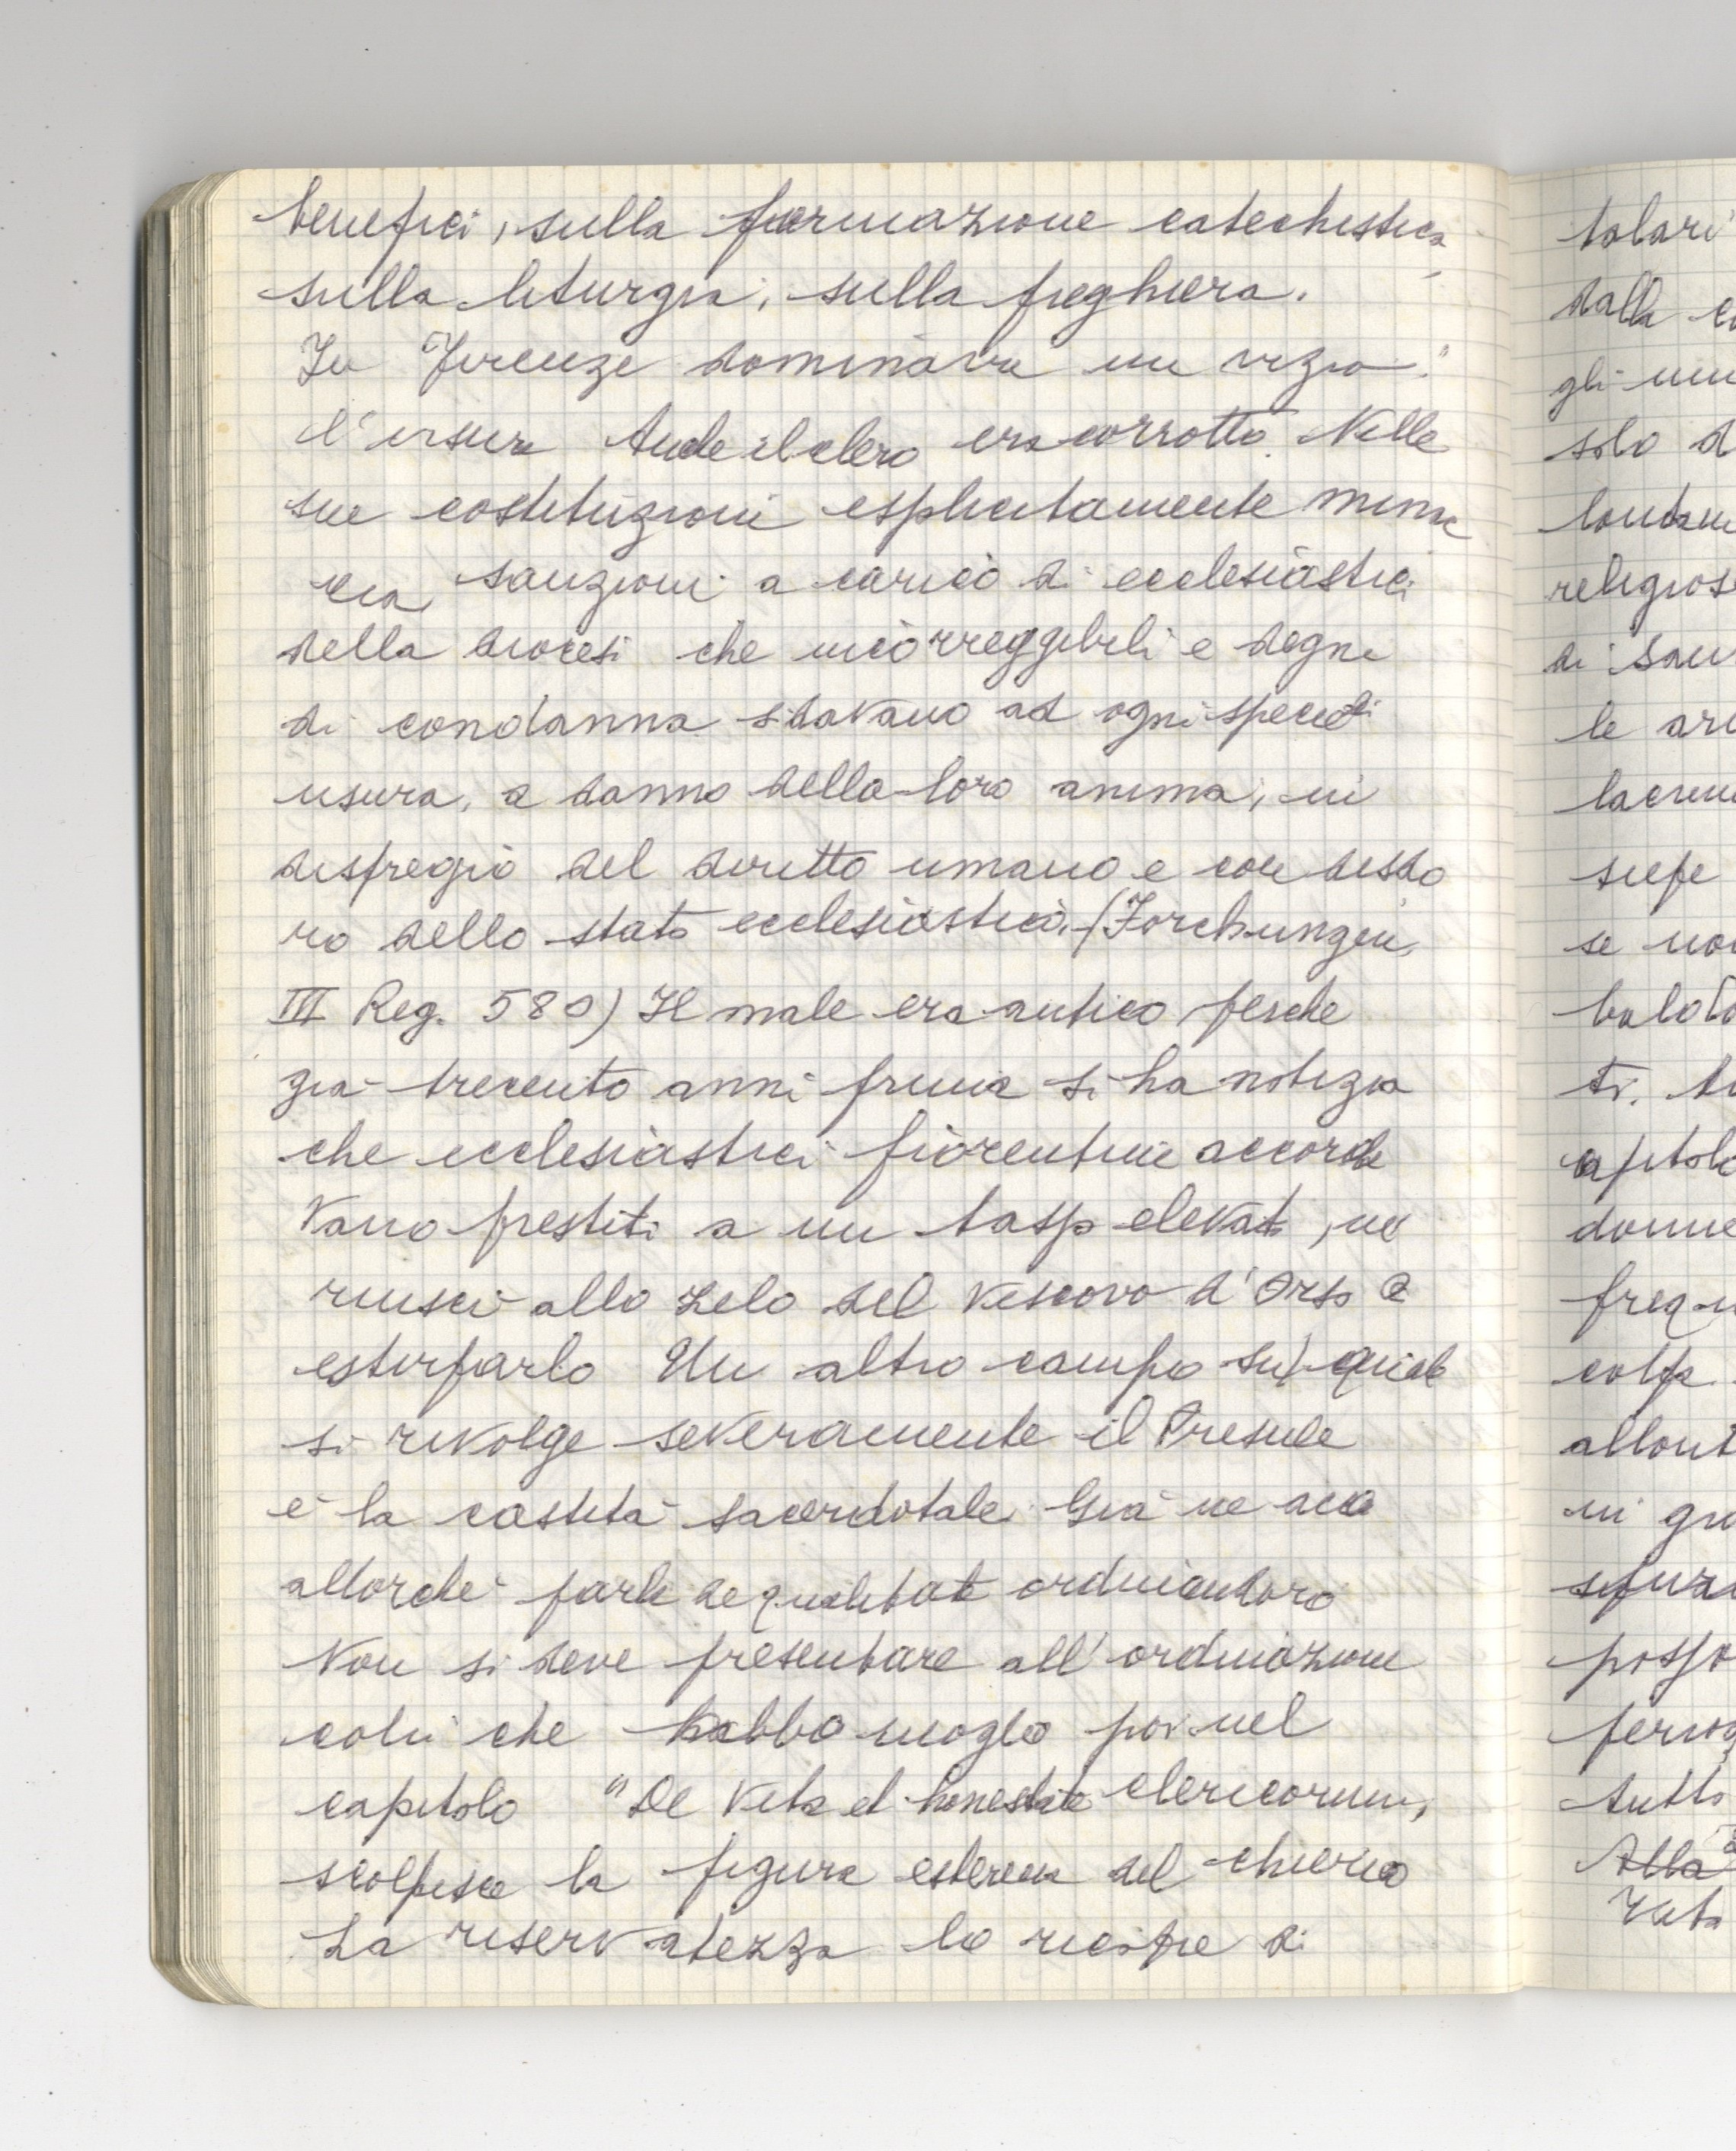 benefici, sulla formazione catechistica
sulla liturgia, sulla preghiera.
In Firenze dominava un vizio:
l'usura Anche il clero era corrotto. Nelle
sue costituzioni esplicitamente minac
cia sanzioni a carico di ecclesiastici
della diocesi che incorreggibili e degni
di condanna si davano ad ogni specie di
usura, a danno della loro anima, in
dispregio del diritto umano e con disdo
ro dello stato ecclesiastico. (Forchungen,
III Reg. 580) Il male era antico perche
già trecento anni prima si ha notizia
che ecclesiastici fiorentini accorda
vano prestiti a un tasso elevato, ne
riuscì allo zelo del Vescovo d'Orso a
estirparlo Un altro campo sul quale
si rivolge severamente il Presule
è la castità sacerdotale. Già ne
allorché parla de qualitate ordinandorum
Non si deve presentare all'ordinazione
colui che habbo moglie poi nel
capitolo "De Vita et honestate clericorum,
scolpisce la figura esterna del chierico
La riservatezza lo ricopre di
tolari
dalla
gli
solo d
religios
di
le
se
ti.
donne
frequ
colpa
in
tutto
Alla
Vita